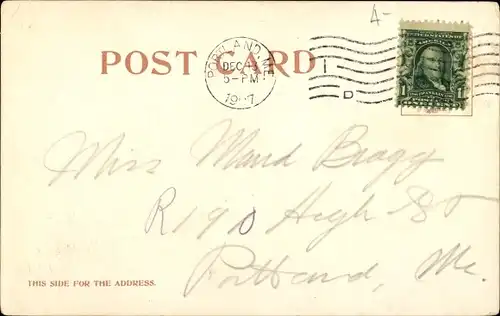 A-
POST CARD
PORTLAND, ME.
DEC 13
5-PM
1907
I
D
1 1
Miss Maud Bragg
R 190 High St
Portland, Me.
THIS SIDE FOR THE ADDRESS.